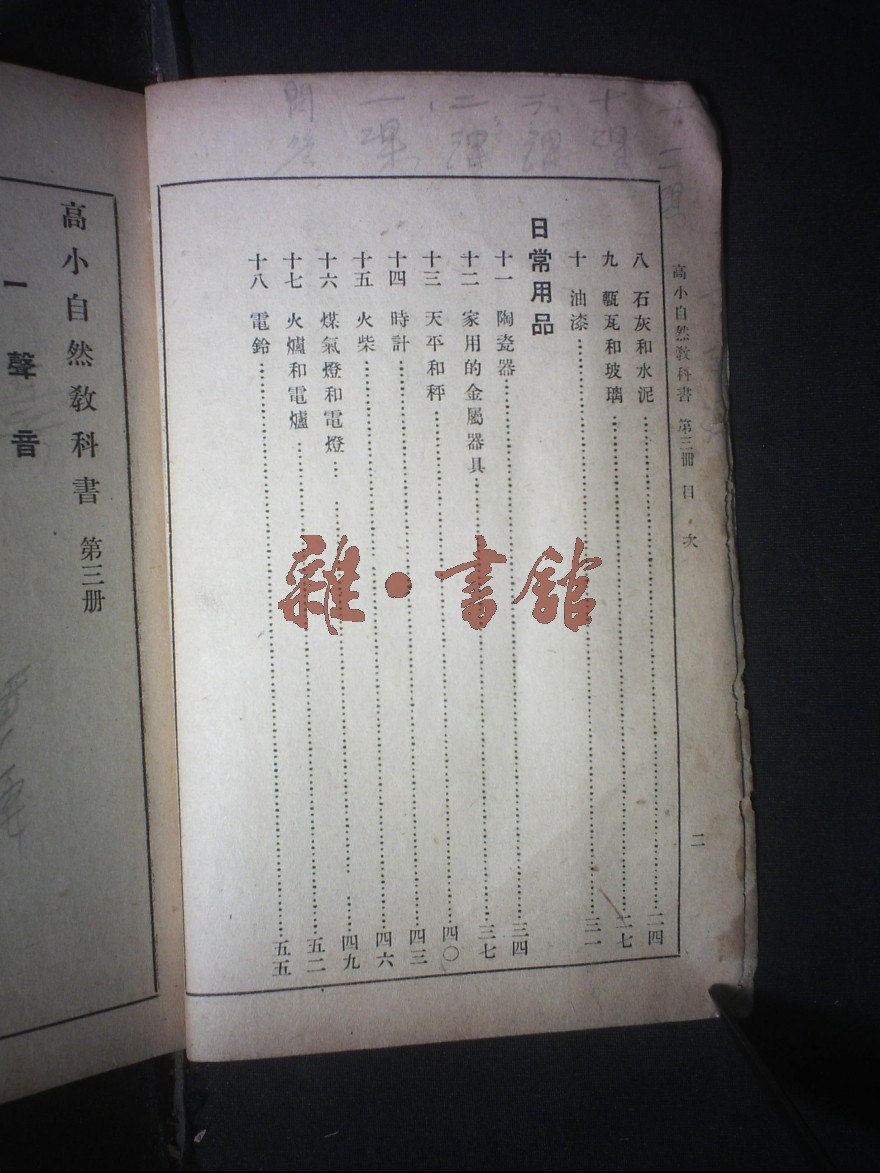 高小自然敎科書 第三册 目次 二
八 石灰和水泥 二四
九 甎瓦和玻璃 二七
十 油漆 三一
日常用品
十一 陶瓷器 三四
十二 家用的金屬器具 三七
十三 天平和秤 四〇
十四 時計 四三
十五 火柴 四六
十六 煤氣燈和電燈 四九
十七 火爐和電爐 五二
十八 電鈴 五五
高小自然敎科書 第三册
一 聲音
雜·書館